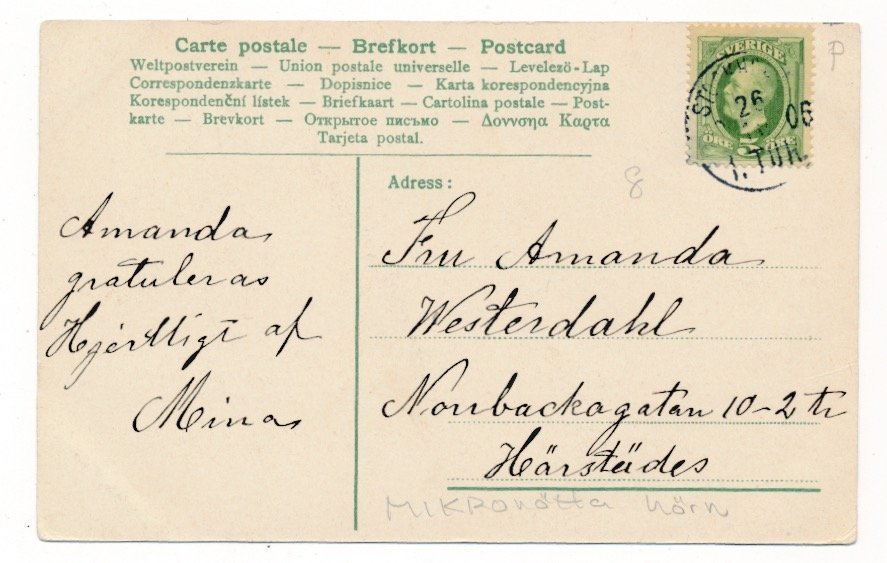 Carte postale — Brefkort — Postcard
Weltpostverein — Union postale universelle — Levelezö-Lap
Correspondenzkarte — Dopisnice — Karta korespondencyjna
Korespondenční lístek — Briefkaart — Cartolina postale — Post-
karte — Brevkort — Открытое письмо — Δοννσηα Καρτα
Tarjeta postal.
P
SVERIGE
5
ÖRE
26
06
1. TUR.
8
Adress:
Amanda
gratuleras
Hjertligt af
Mina
Fru Amanda
Westerdahl
Norrbackagatan 10-2 tr
Härstädes
MIKRONÖTTA hörn